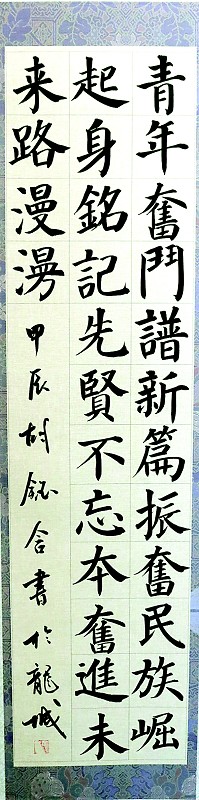 青年奮鬥譜新篇振奮民族崛
起身銘記先賢不忘本奮進未
来路漫漫
甲辰 含書於龍城